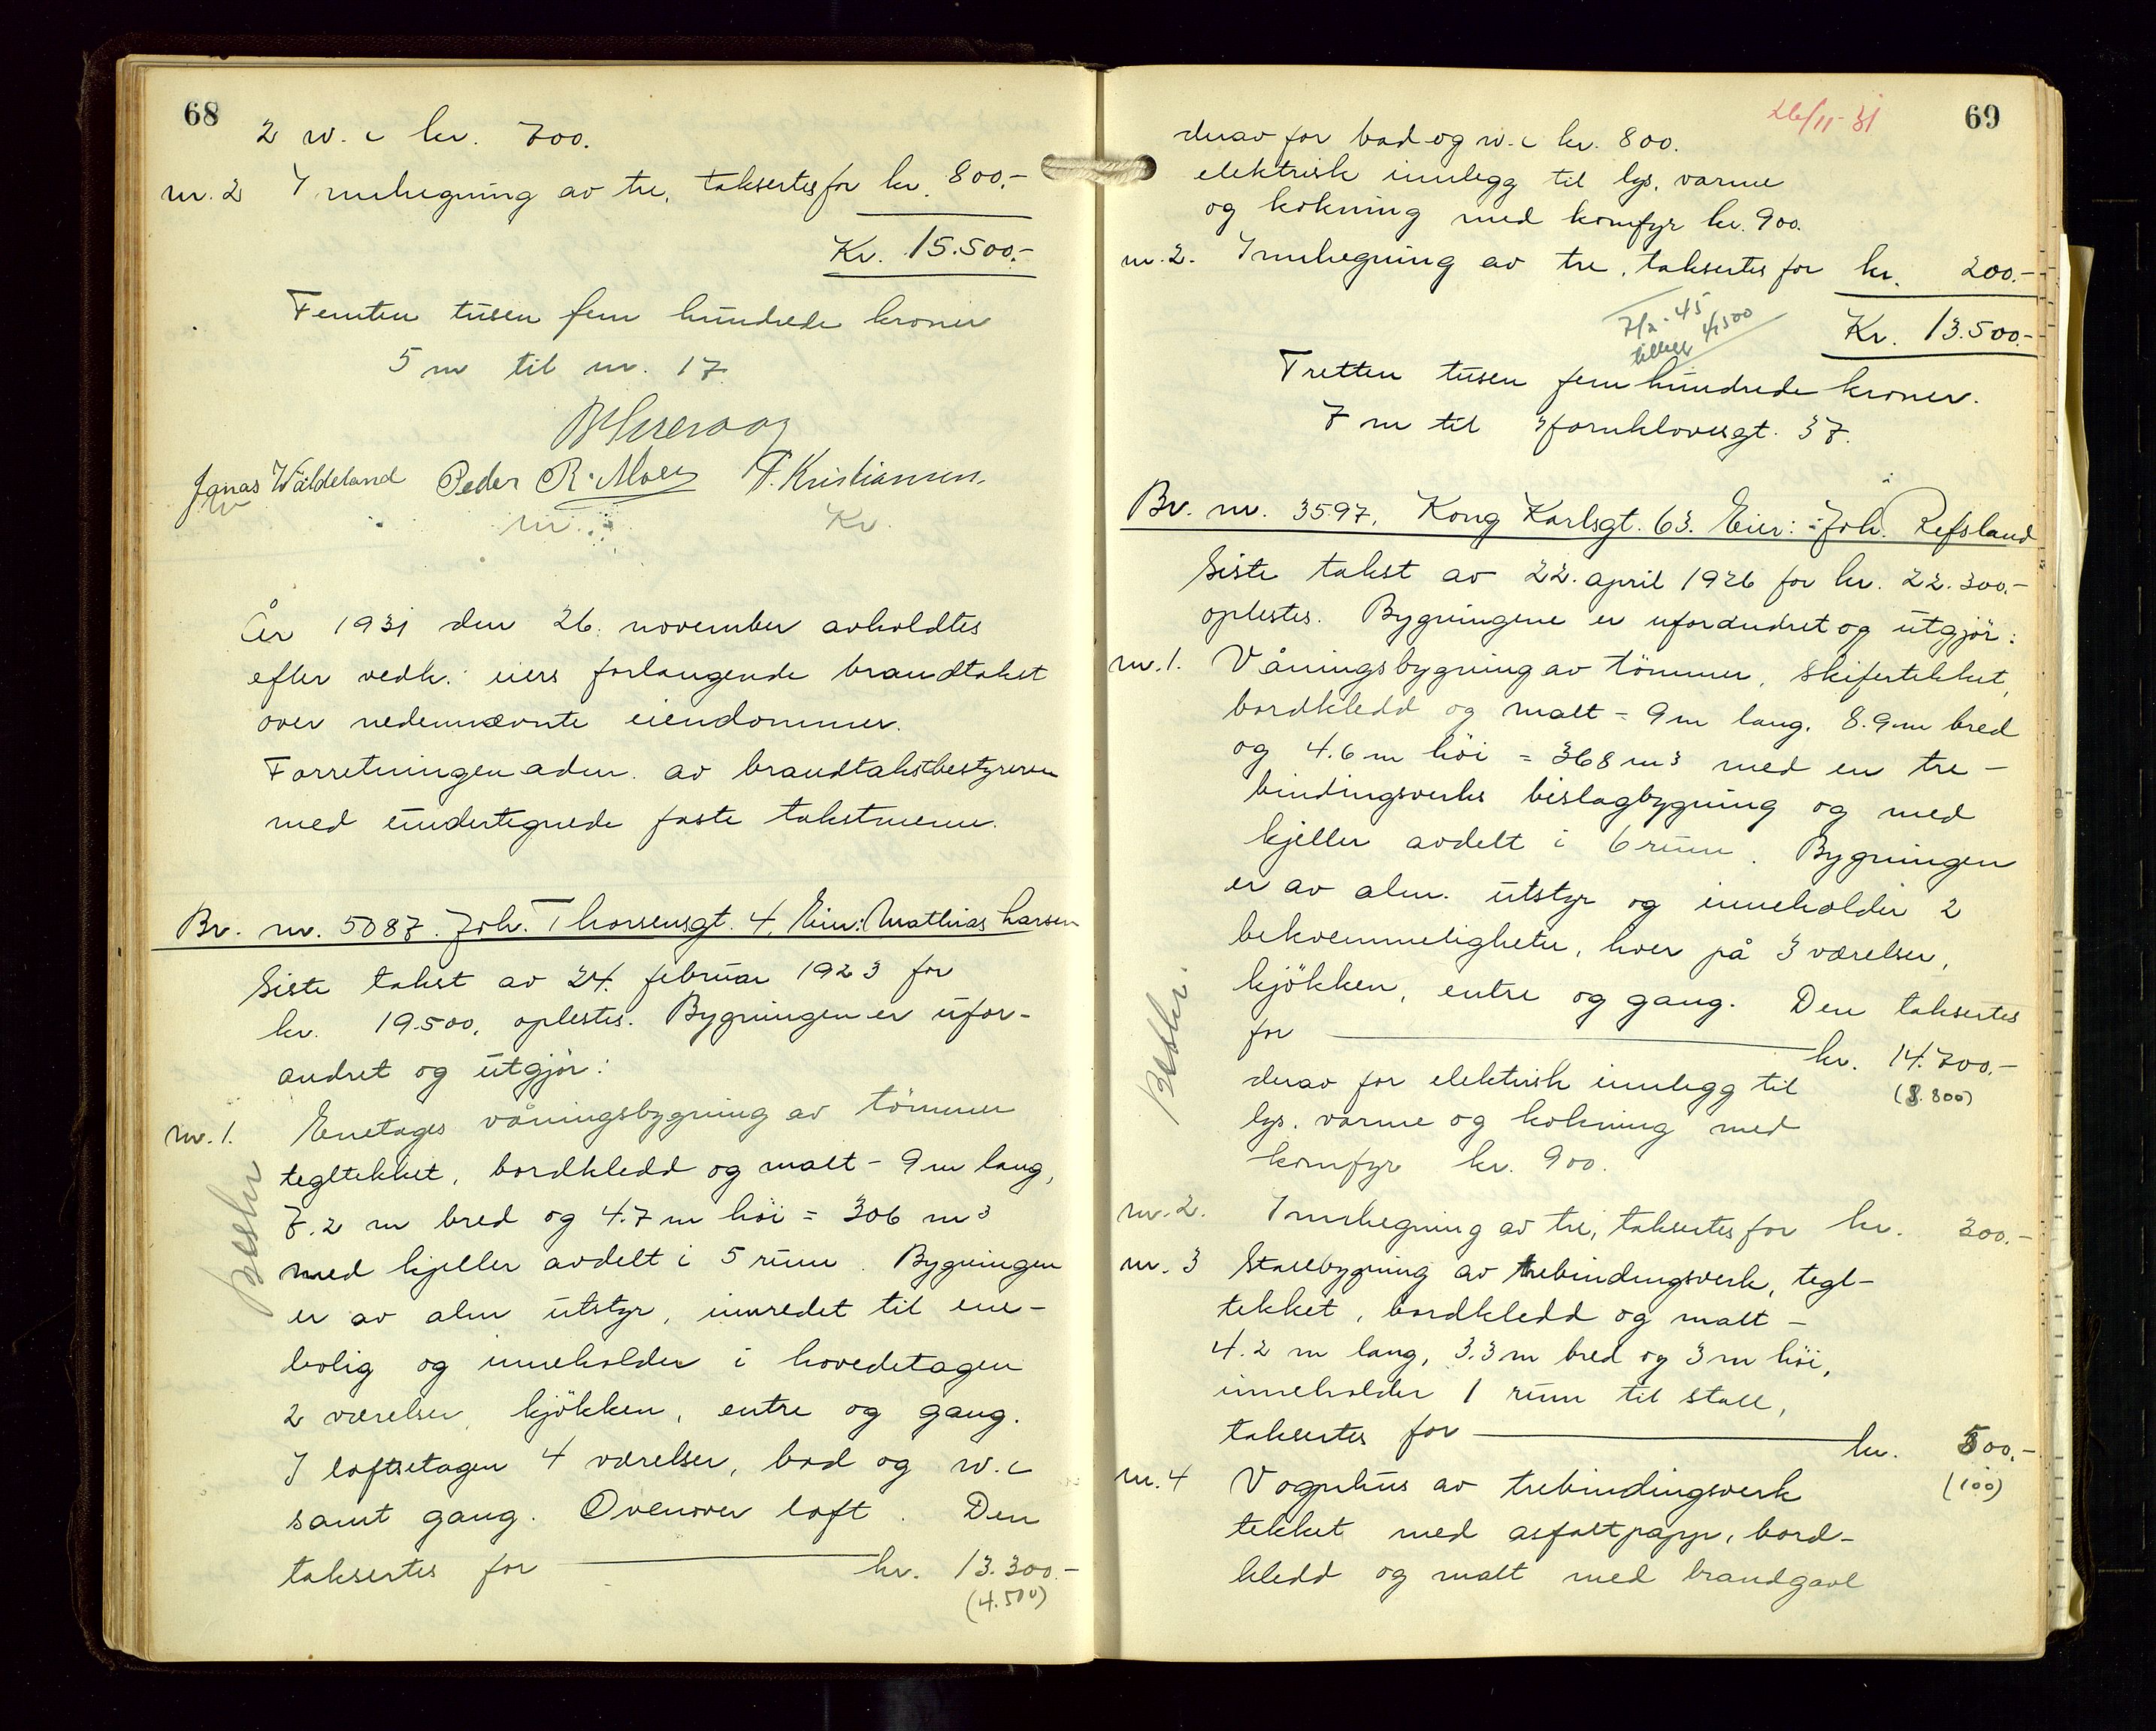 68
2 w.c kr. 700.
nr. 2 Innhegning av tre, taksertes for kr. 800.-
Kr. 15.500.-
Femten tusen fem hundrede kroner
5 m til nr. 17.
Jonas Wäldeland Peder R. Moes T. Kristiansen.
W m. Kr.
År 1931 den 26. november avholdtes
efter vedk. eiers forlangende brandtakst
over nedennævnte eiendommer.
Forretningen adm. av brandtakstbestyreren
med undertegnede faste takstmenn.
Br. nr. 5087. Joh. Thorsensgt. 4. Eier: Mathias Larsen
Siste takst av 24. februar 1923 for
kr. 19.500, oplestes. Bygningen er ufor-
andret og utgjør:
nr. 1. Enetages våningsbygning av tømmer
tegltekket, bordkledd og malt - 9 m lang,
7.2 m bred og 4.7 m höi = 306 m3
med kjeller avdelt i 5 rum. Bygningen
er av alm utstyr, innredet til ene-
bolig og inneholder i hovedetagen
2 værelser, kjökken, entre og gang.
I loftsetagen 4 værelser, bad og w.c
samt gang. Ovenover loft. Den
taksertes for kr. 13.300.-
(4.500)
Beskr
69
26/11-31
derav for bad og w.c kr. 800.
elektrisk innlegg til lys, varme
og kokning med komfyr kr. 900.
nr. 2. Innhegning av tre, taksertes for kr. 200.-
7/2-45 4500
tillegg
Kr. 13.500.-
Tretten tusen fem hundrede kroner.
7 m til Fornklovsgt. 37.
Br. nr. 3597. Kong Karlsgt. 63. Eier: Joh. Refsland
Siste takst av 22. april 1926 for kr. 22.300.-
oplestes. Bygningene er uforandret og utgjør:
nr. 1. Våningsbygning av tömmer, skifertekket,
bordkledd og malt = 9 m lang, 8.9 m bred
og 4.6 m höi = 368 m3 med en tre-
bindingsverks bislagbygning og med
kjeller avdelt i 6 rum. Bygningen
er av alm. utstyr og inneholder 2
bekvemmeligheter, hver på 3 værelser,
kjökken, entre og gang. Den taksertes
for kr. 14.700.-
(8.800)
derav for elektrisk innlegg til
lys, varme og kokning med
komfyr kr. 900.
Beskr.
nr. 2. Innhegning av tre, taksertes for kr. 200.-
nr. 3 Stallbygning av trebindingsverk, tegl-
tekket, bordkledd og malt -
4.2 m lang, 3.3 m bred og 3 m höi,
inneholder 1 rum til stall,
taksertes for kr. 500.-
(100)
nr. 4 Vognhus av trebindingsverk
tekket med asfaltpapp, bord-
kledd og malt med brandgavl